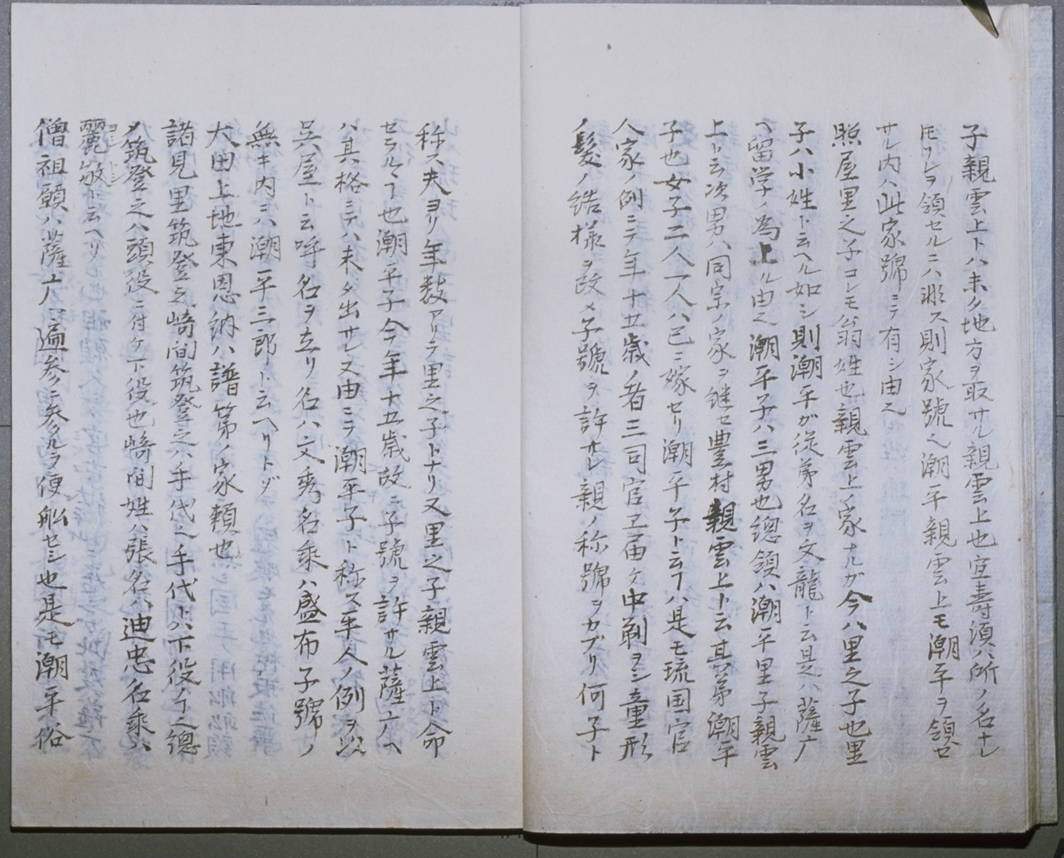 子親雲上トハ未タ地方ヲ取サル親雲上也宜壽湏ハ所ノ名ナレ
𪜈リヒヲ領セルニハ非ス則家號也潮平親雲上モ潮平ヲ領セ
サル内ハ此家號ニテ有シ由也
照屋里之子コレモ翁姓也親雲上ノ家ナルガ今ハ里之子也里
子ハ小姓ト云ヘル如シ則潮平ガ従弟名ヲ文龍ト云是ハ薩广
ヘ留学ノ為上ル由也潮平子ハ三男也總領ハ潮平里子親雲
上ト云次男ハ同宗ノ家ヲ継セ豊村親雲上ト云其弟潮平
子也女子二人一人ハ已ニ嫁セリ潮平子ト云フハ是モ琉国官
人家ノ例ニテ年十五歳ノ者三司官エ届ケ中剃ヲシ童形
ノ髪ノ結様ヲ改メ子號ヲ許サレ親ノ称號ヲカブリ何子ト
称ス夫ヨリ年数アリテ里之子トナリ又里之子親雲上ト命
セラルヽヿ也潮平子今年十五歳故ニ子號ヲ許サル薩广ヘ
ハ其格ニテハ未タ出サレ又由ニテ潮平子ト称ス平人ノ例ヲ以
呉屋ト云呼名ヲ立リ名ハ文秀名乗ハ盛布子號ノ
無キ内ニハ潮平三郎ート云ヘリトゾ
大田上地東恩納ハ譜第ノ家頼也
諸見里筑登之崎間筑登之ハ手代也手代トハ下役ノヿ也徳
ノ筑登之ハ頭役ニ付ケ下役也崎間姓ハ張名ハ迪忠名乗ハ
麗敏ト云ヘリ
僧祖願ハ薩广ヘ遍参ニ参ルヲ便舩セシ也是モ潮平俗